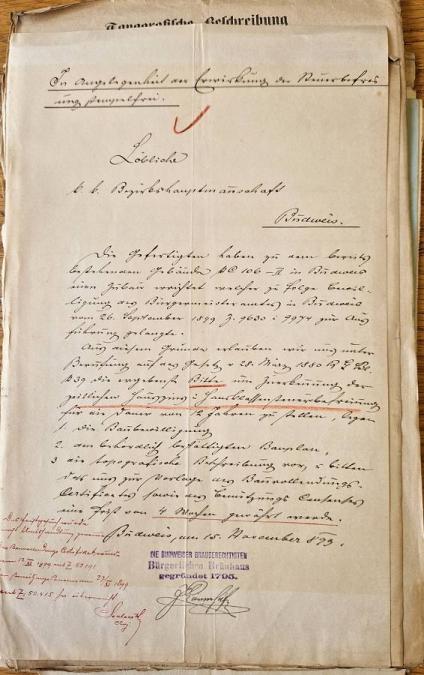 Topografische Beschreibung
In Angelegenheit der Erwirkung der Steuerbefrei
ung stempelfrei.
Löbliche
k. k. Bezirkshauptmannschaft
Budweis.
Die Gefertigten haben zu dem bereits
bestehenden Gebäude NC 106-II in Budweis
einen Zubau errichtet welcher zu Folge Bewil-
ligung des Bürgermeisteramtes in Budweis
vom 26. September 1899 Z. 9630 i 9974 zur Aus
führung gelangte.
Aus diesem Grunde erlauben wir uns unter
Berufung auf das Gesetz v 28. März 1880 R. G. Bl.
№ 39 die ergebenste Bitte um Zuerkennung der
zeitlichen Hauszins i Hausklassensteuerbefreiung
für die Dauer von 12 Jahren zu stellen, legen
1. die Baubewilligung
2. den behördlich bestätigten Bauplan,
3 die topografische Beschreibung vor, i bitten
dass uns zur Vorlage des Bauvollendungs
Certificates sowie des Benützungs Consenses
eine Frist von 4 Wochen gewährt werde.
Budweis, am 15. November 1899.
DIE BUDWEISER BRAUBERECHTIGTEN
Bürgerliches Bräuhaus
gegründet 1795.